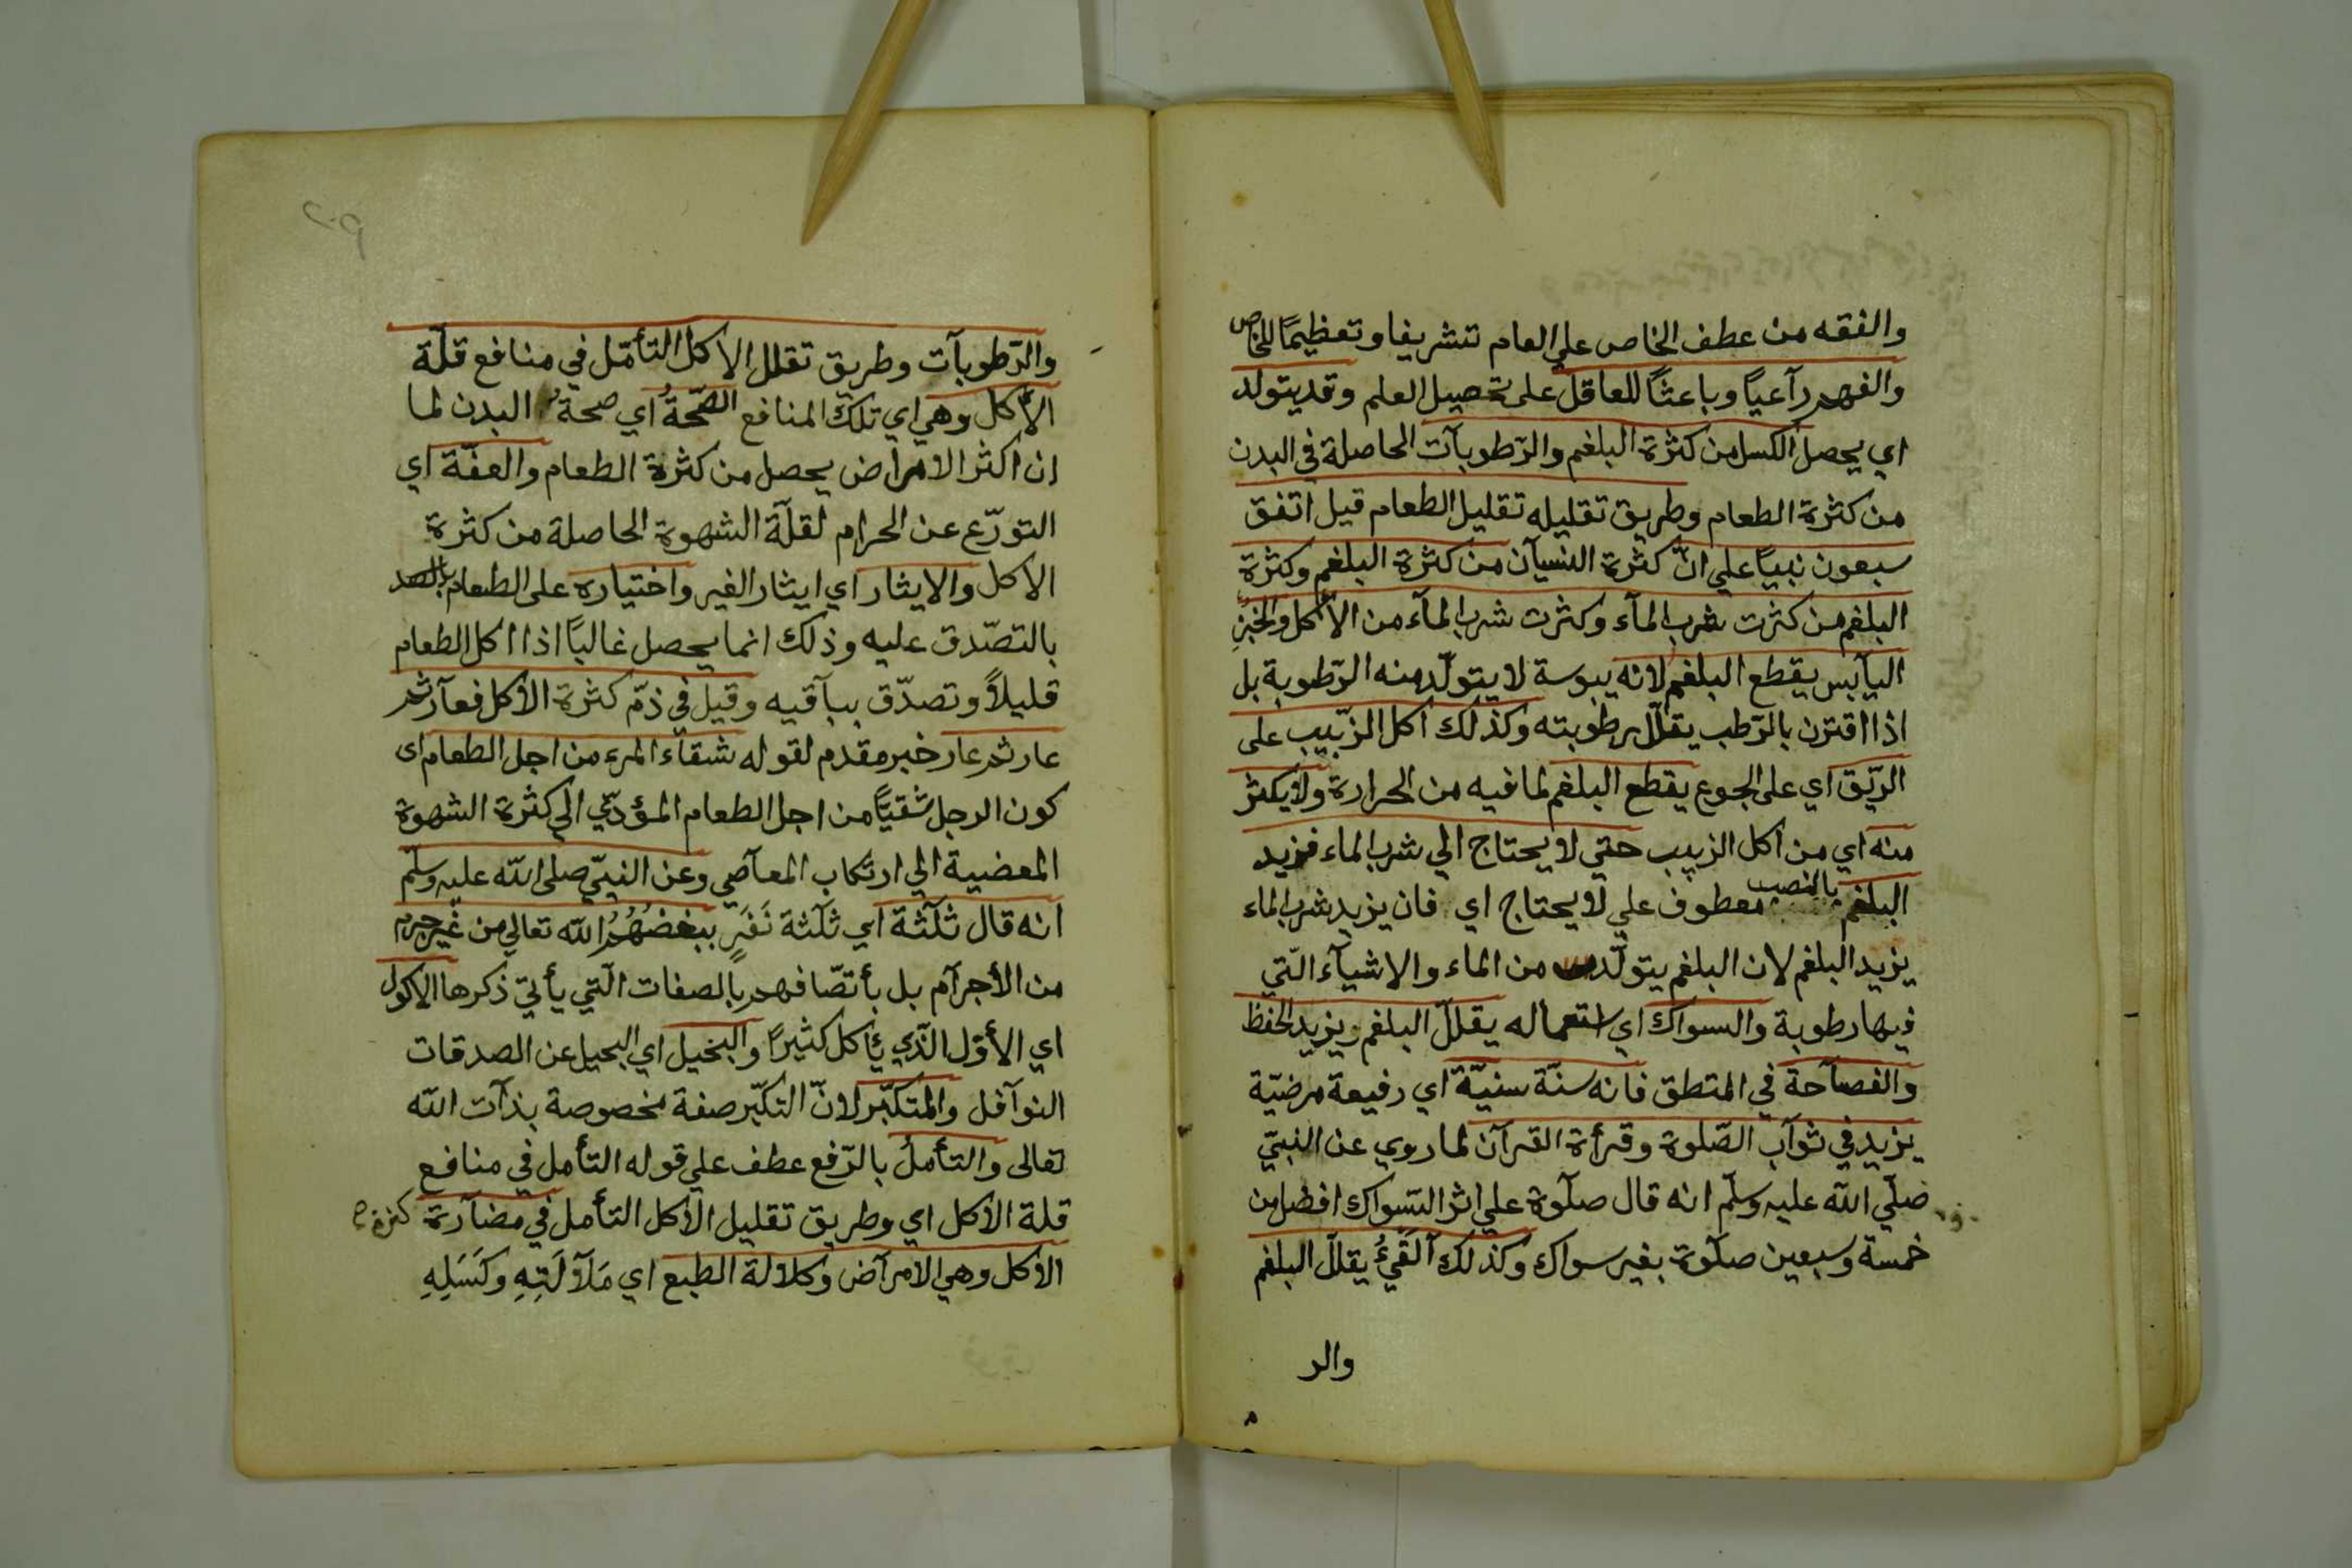 والفقه من عطف الخاص علي العام تشريفا وتعظيمًا للخاص
والفهم رآعيًا وباعثًا للعاقل على تحصيل العلم وقد يتولد
اي يحصل الكسل من كثرة البلغم والرّطوبآت الحاصلة في البدن
من كثرة الطعام وطريق تقليله تقليل الطعام قيل اتفق
سبعون نبيًا علي انّ كثرة النسيآن من كثرة البلغم وكثرة
البلغم من كثرت شرب المآء وكثرت شرب المآء من الأكل والخبز
اليآبس يقطع البلغم لانه يبوسة لا يتولّد منه الرّطوبة بل
اذا اقترن بالرّطب يقلّل رطوبته وكذلك اكل الزّبيب على
الرّيق اي على الجوع يقطع البلغم لما فيه من الحرارة ولا يكثر
منه اي من اكل الزبيب حتي لا يحتاج الي شرب الماء فيزيد
البلغم بالنصب معطوف علي لا يحتاج اي فان يزيد شرب الماء
يزيد البلغم لان البلغم يتولّد من الماء والاشيآء الّتي
فيها رطوبة والسواك اي استعماله يقلّل البلغم ويزيد الحفظ
والفصآحة في المتطق فانه سنّة سنيّة اي رفيعة مرضيّة
يزيد في ثوآب الصّلوة وقرأة القرآن لما روي عن النبيّ
صلّي الله عليه وسلّم انه قال صلوة علي اثر السّواك افضل من
خمسة وسبعين صلوة بغير سواك وكذلك القَيْءُ يقلّل البلغم
والر
والرّطوبآت وطريق تقلل الاكل التأمّل في منافع قلّة
الأكل وهي اي تلك المنافع الصّحّةُ اي صحة البدن لما
ان اكثر الامراض يحصل من كثرة الطعام والعفّة اي
التورّع عن الحرام لقلّة الشهوة الحاصلة من كثرة
الاكل والايثار اي ايثار الغير واختياره على الطعام
بالتصّدق عليه وذلك انما يحصل غالبًا اذا اكل الطعام
قليلاً وتصدّق ببآقيه وقيل في ذمّ كثرة الاكل فعآر ثم
عار ثم عار خبر مقدم لقوله شقآء المرء من اجل الطعام اى
كون الرجل شقيًّا من اجل الطعام المؤدّي الي كثرة الشهوة
المعضية الي ارتكاب المعآصي وعن النبيّ صلى الله عليه وسلّم
انه قال ثلٰثة اي ثلٰثة نَفَرٍ يبغضهُمُ الله تعالي من غير جرم
من الأجرآم بل بأتصّافهم بالصفات الّتي يأتي ذكرها الاكول
اي الأوّل الّذي يأكل كثيرًا والبخيل اي البخيل عن الصدقات
النوآفل والمتكبّر لانّ التكبّر صفة مخصوصة بذآت الله
تعالى والتأملُ بالرّفع عطف علي قوله التأمل في منافع
قلة الاكل اي وطريق تقليل الاكل التأمل في مضآرة كثرة
الاكل وهي الامرآض وكلالة الطبع اي مَلآلَتِهِ وكَسَلِهِ